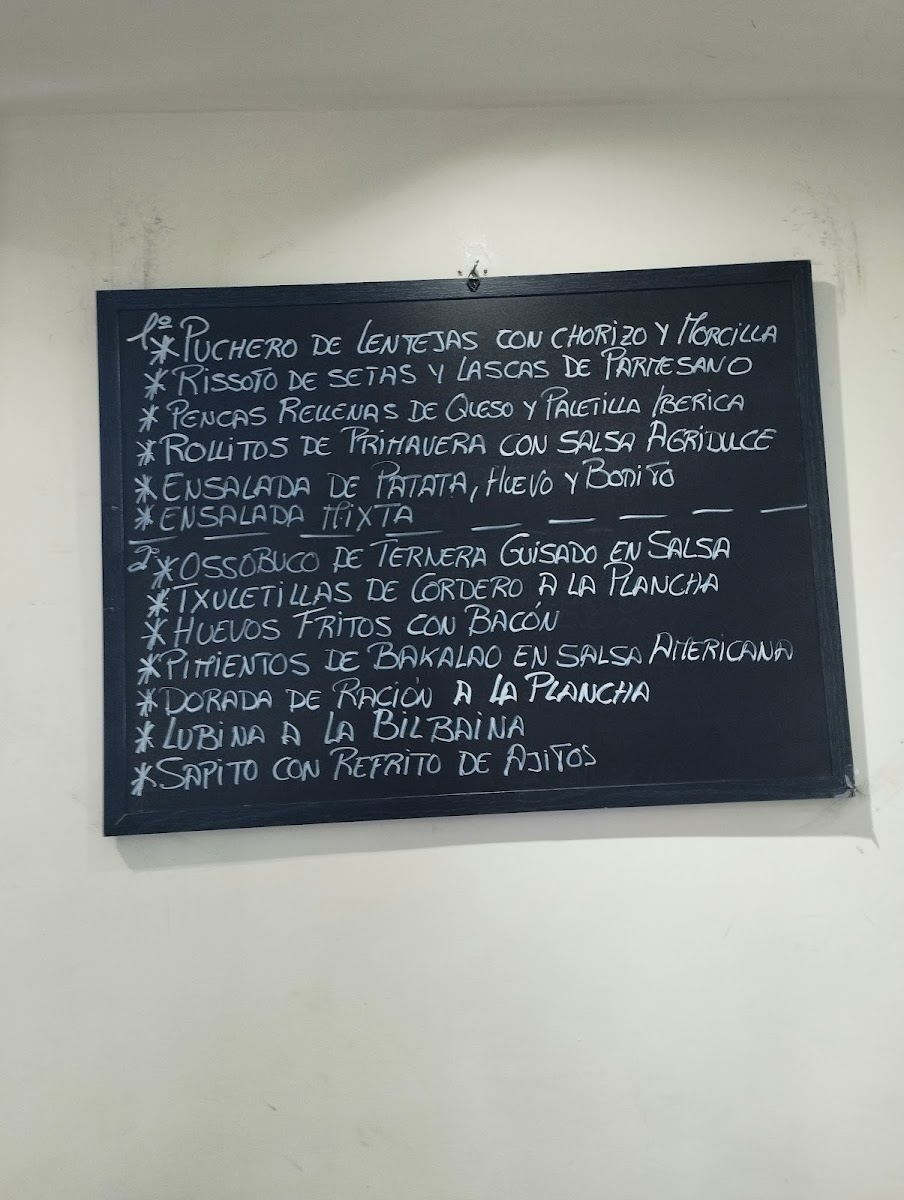 1º
* PUCHERO DE LENTEJAS CON CHORIZO Y MORCILLA
* RISSOTO DE SETAS Y LASCAS DE PARMESANO
* PENCAS RELLENAS DE QUESO Y PALETILLA IBERICA
* ROLLITOS DE PRIMAVERA CON SALSA AGRIDULCE
* ENSALADA DE PATATA, HUEVO Y BONITO
* ENSALADA MIXTA
2º
* OSSOBUCO DE TERNERA GUISADO EN SALSA
* TXULETILLAS DE CORDERO A LA PLANCHA
* HUEVOS FRITOS CON BACÓN
* PIMIENTOS DE BAKALAO EN SALSA AMERICANA
* DORADA DE RACIÓN A LA PLANCHA
* LUBINA A LA BILBAINA
* SAPITO CON REFRITO DE AJITOS